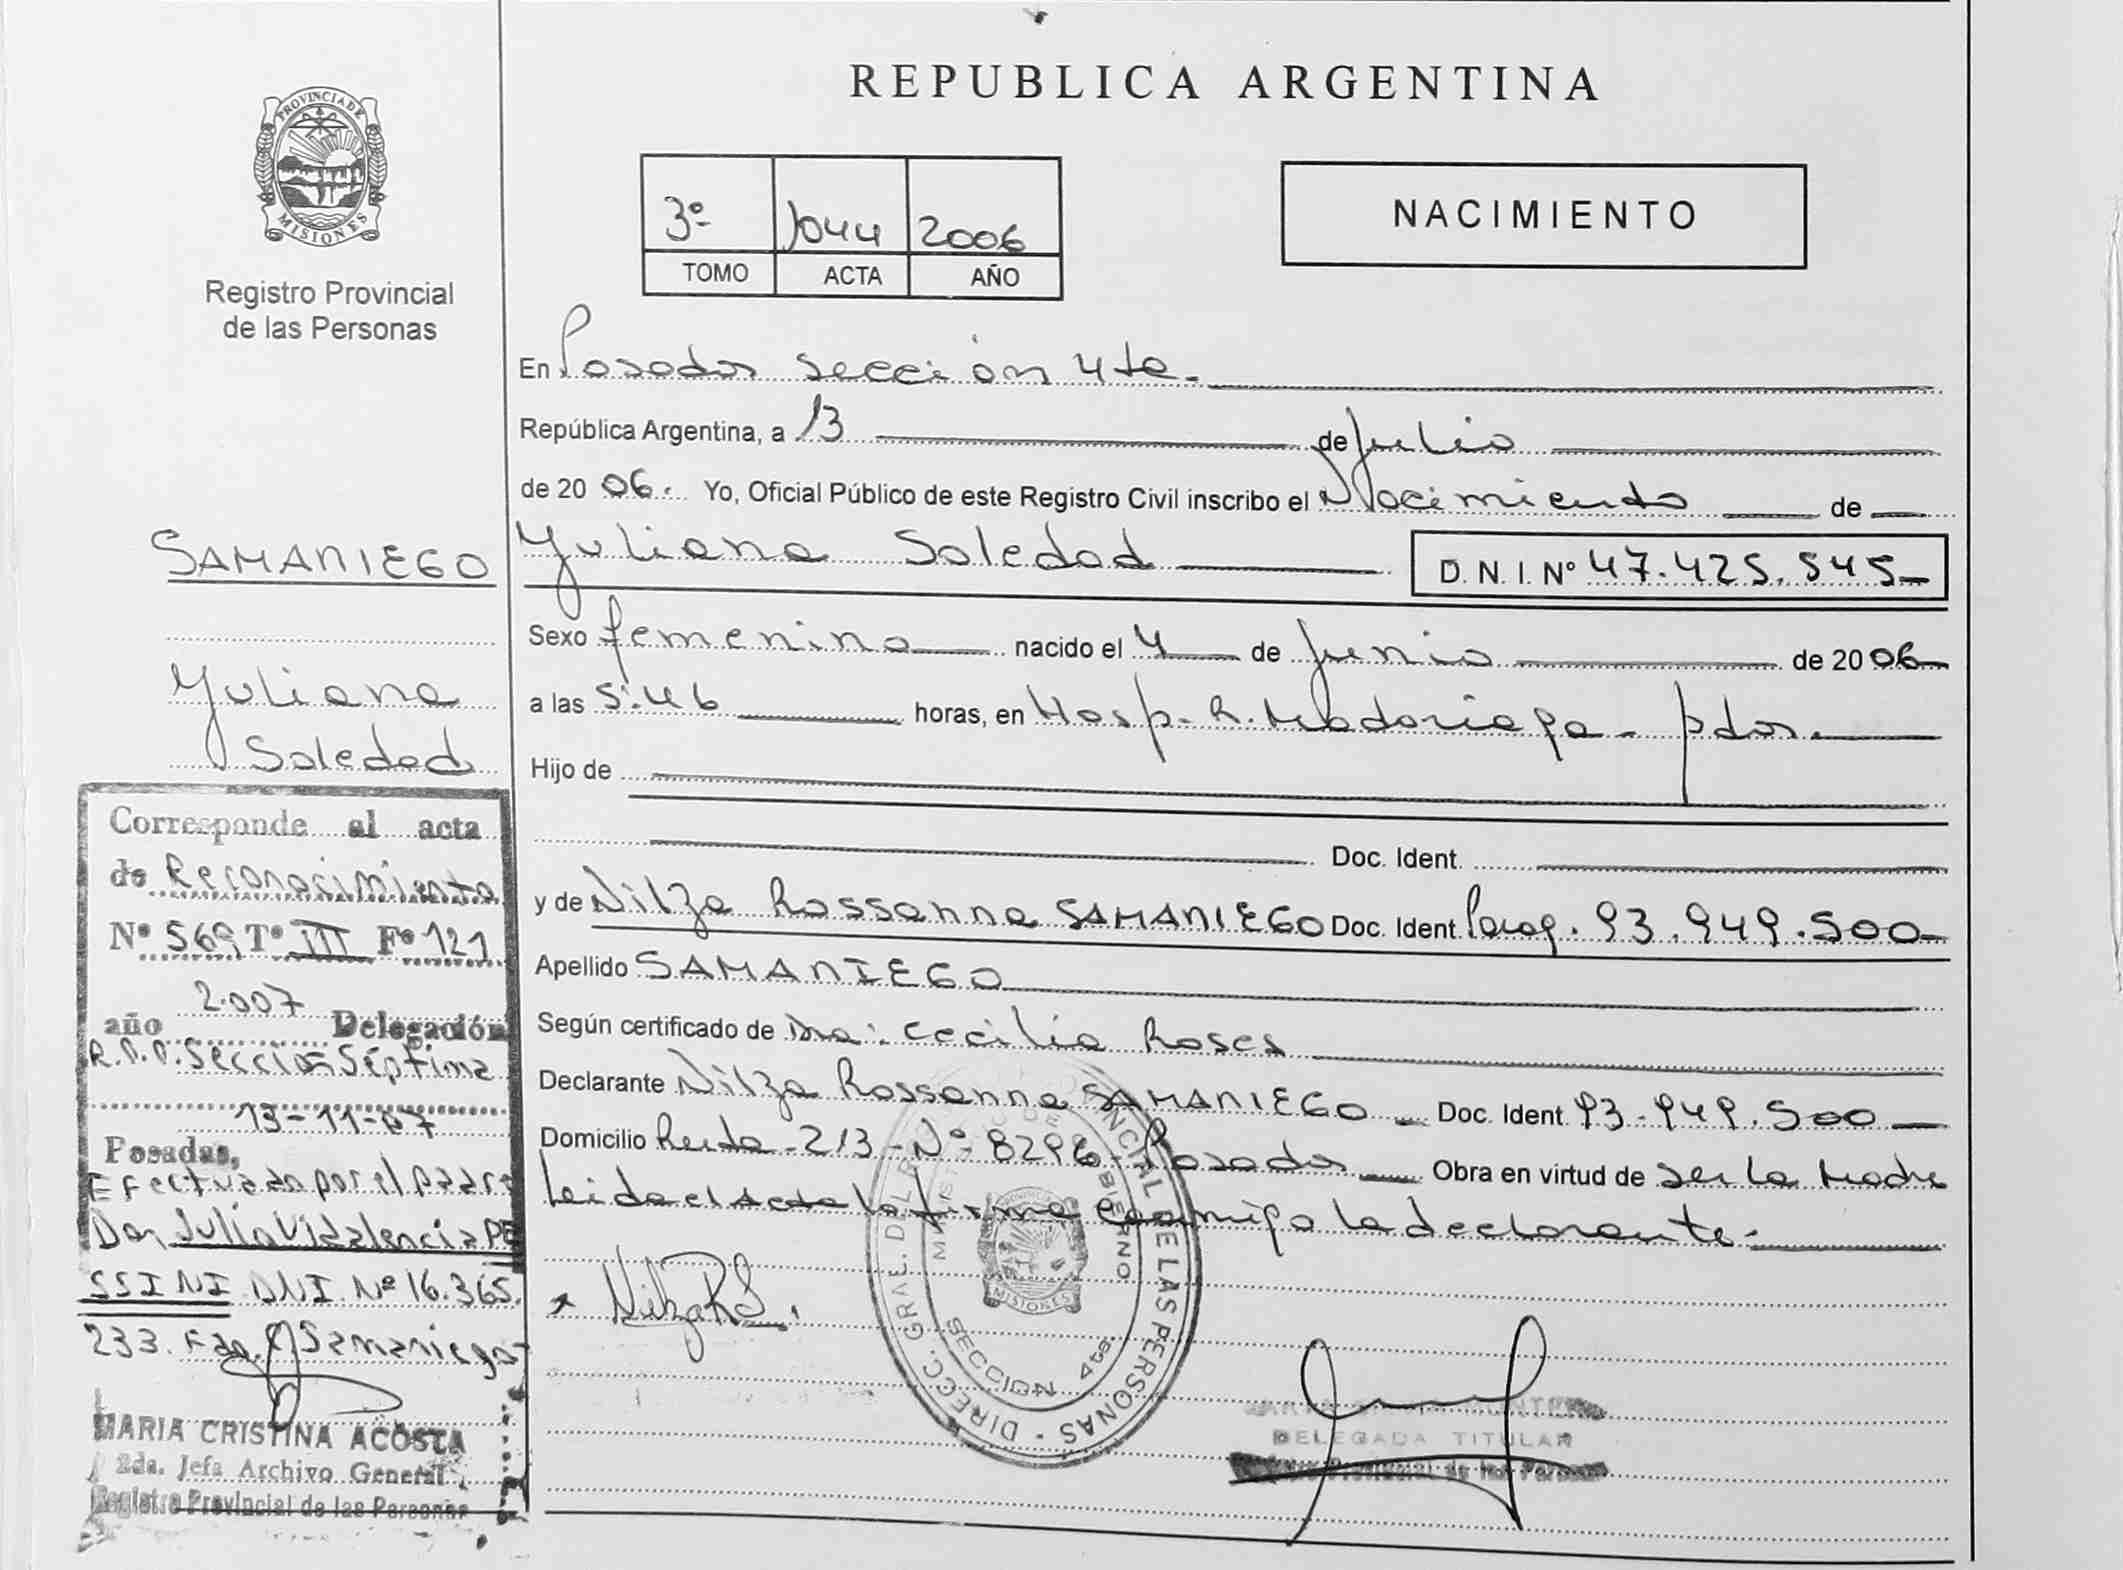 REPUBLICA ARGENTINA
PROVINCIA DE
MISIONES
Registro Provincial
de las Personas
3º 1044 2006
TOMO ACTA AÑO
NACIMIENTO
En Posadas sección 4ta.
República Argentina, a 13 de julio
de 20 06. Yo, Oficial Público de este Registro Civil inscribo el Nacimiento de
SAMANIEGO
Yuliana Soledad D. N. I. Nº 47.425.545
Sexo femenino nacido el 4 de junio de 20 06
Yuliana
Soledad
a las 5:46 horas, en Hosp. R. Madariaga - pdas.
Hijo de
Doc. Ident.
y de Nilza Rossanna SAMANIEGO Doc. Ident. Parag. 93.949.500
Apellido SAMANIEGO
Según certificado de Dra: Cecilia Roses
Declarante Nilza Rossanna SAMANIEGO Doc. Ident. 93.949.500
Domicilio Ruta - 213 - Nº 8296 - Posadas Obra en virtud de ser la Madre
Leida el Acta la firma conmigo la declarante.
Corresponde al acta
de Reconocimiento
Nº 569 Tº III Fº 121
año 2.007 Delegación
R.P.P. Sección Séptima
13-11-07
Posadas,
Efectuado por el padre
Don Julio Vidal encia PE
SSINI DNI Nº 16.365.
233. Fdo. Samaniego
MARIA CRISTINA ACOSTA
2da. Jefa Archivo General
Registro Provincial de las Personas
Nilza R S.
DIRECC. GRAL. DEL R PROVINCIAL DE LAS PERSONAS
MINIST DE GOBIERNO
MISIONES
SECCION 4ta.
DELEGADA TITULAR
Provincial de las Personas